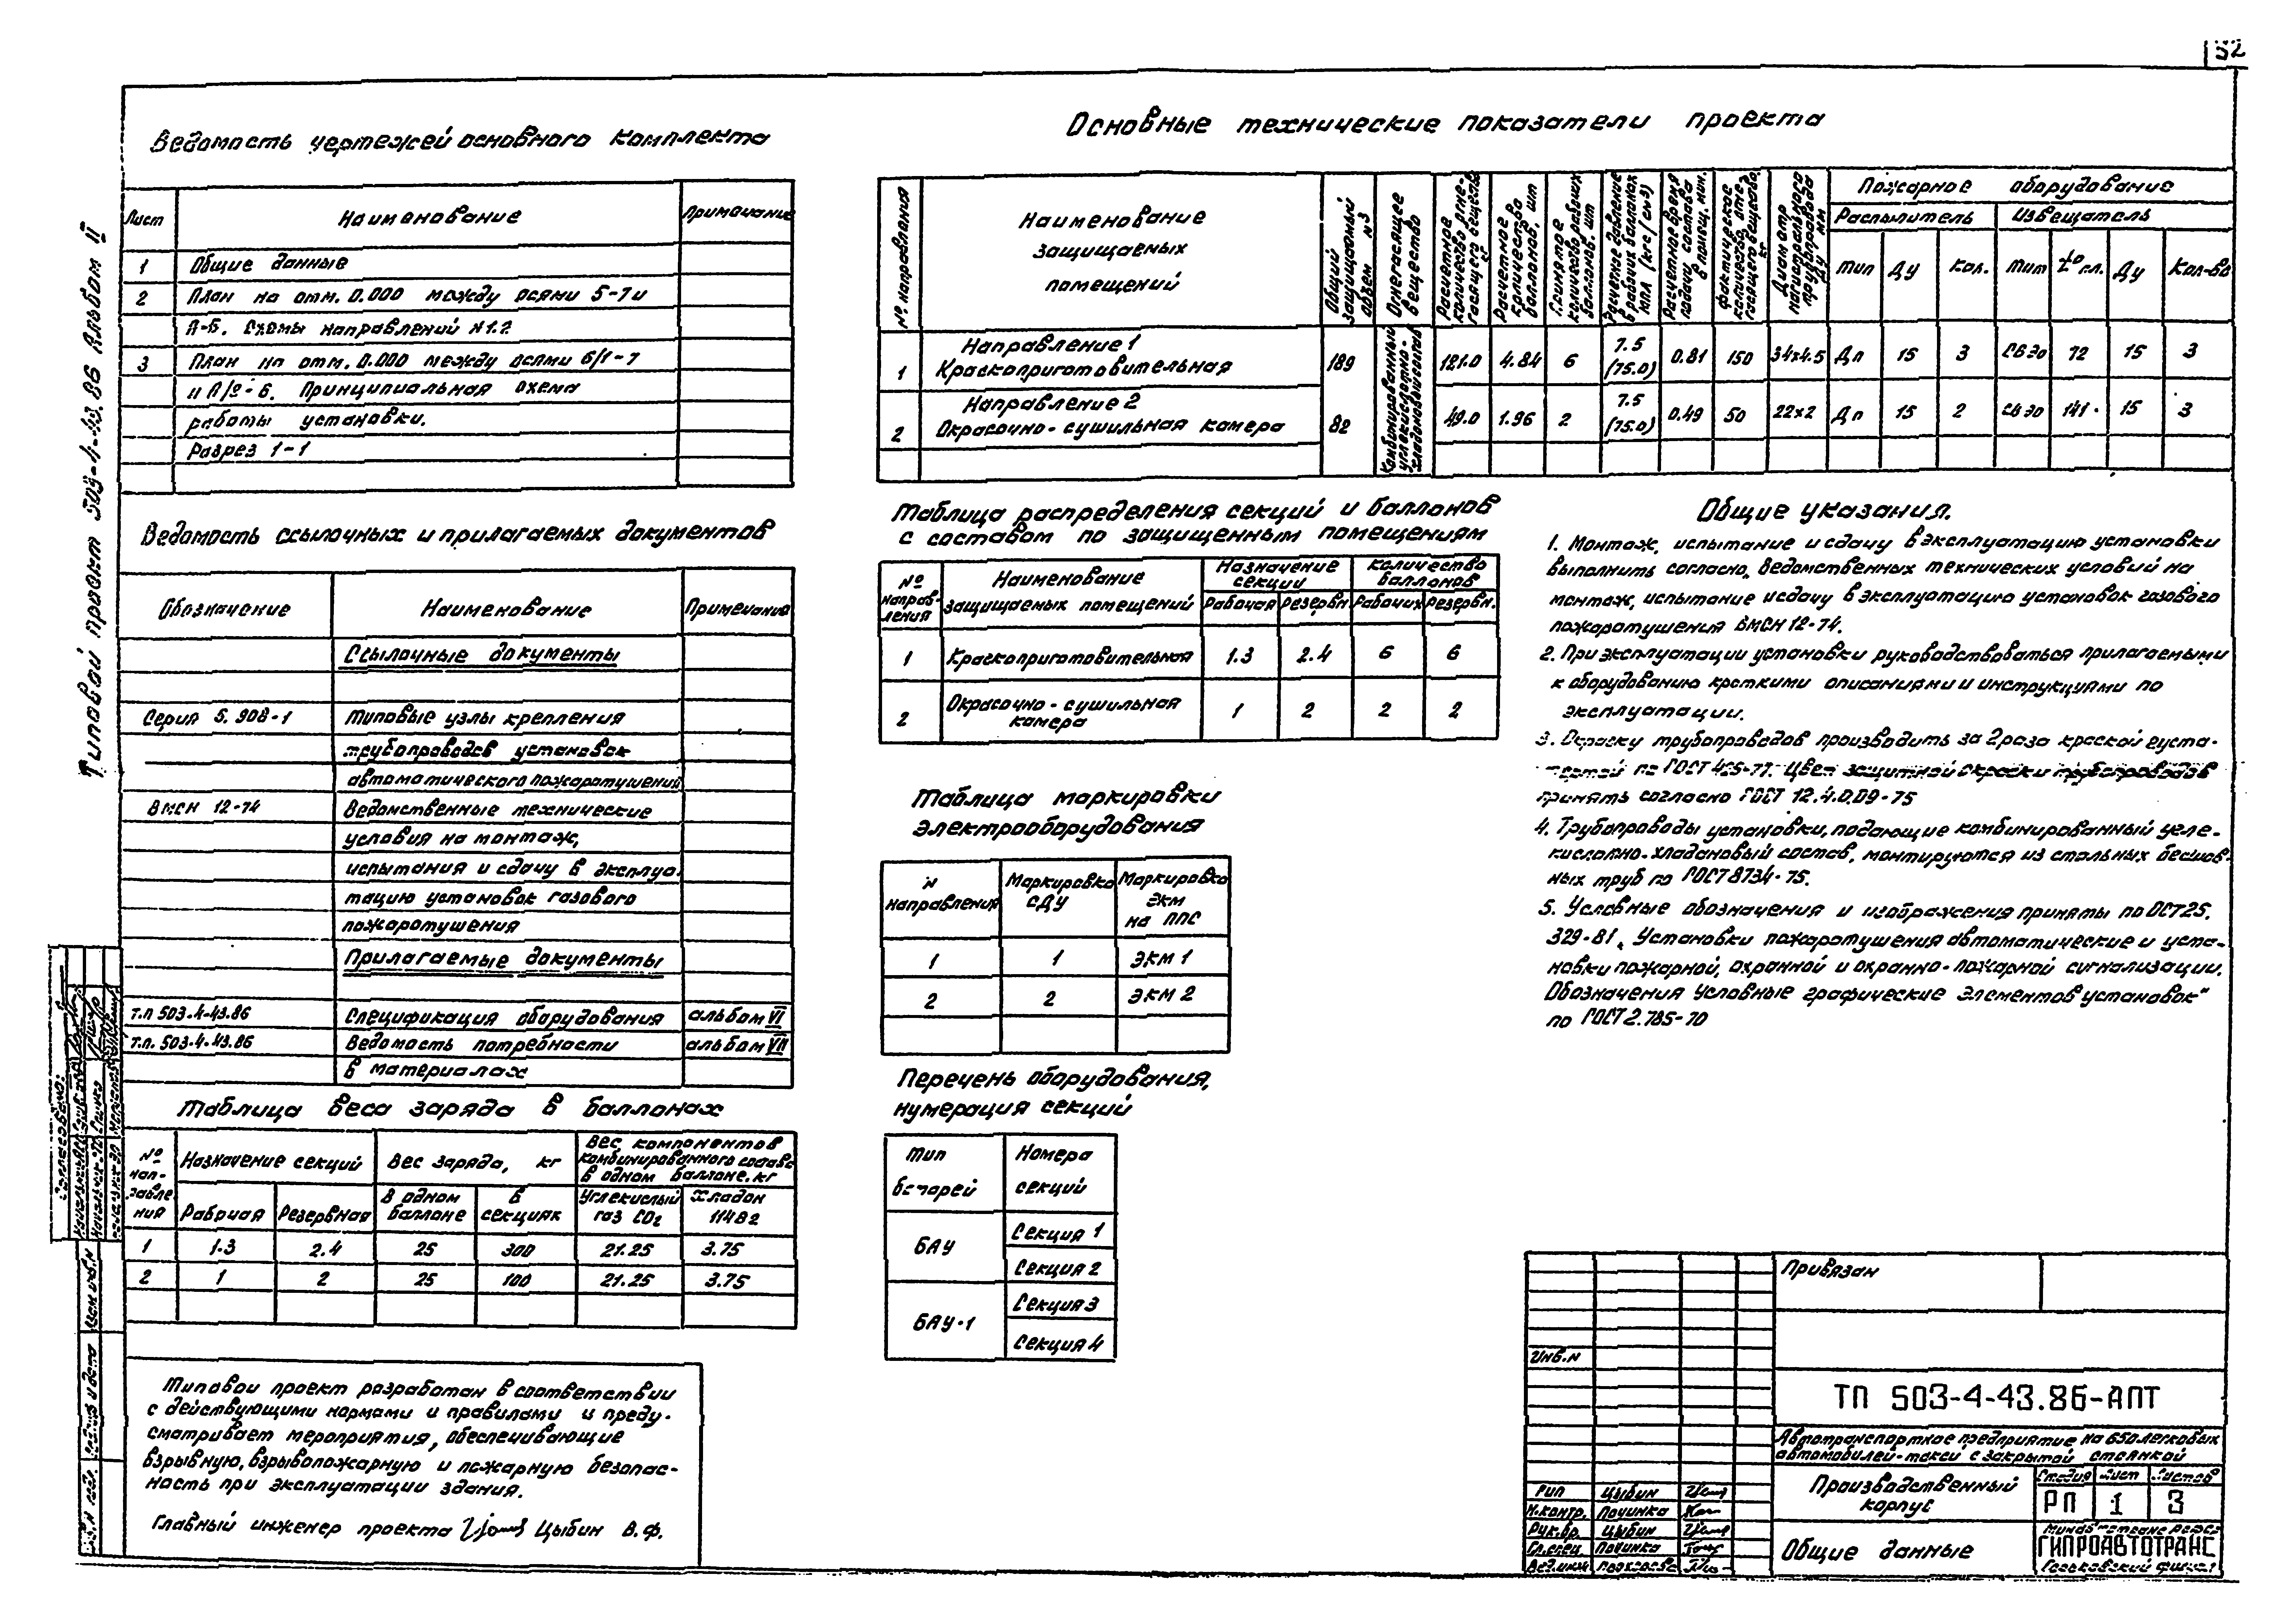 32
Типовой проект 503-4-43.86 Альбом II
Ведомость чертежей основного комплекта
Лист Наименование Примечание
1 Общие данные
2 План на отм. 0.000 между осями 5-7 и
А-Б. Схемы направлений N1.2
3 План на отм. 0.000 между осями 6/1-7
Б. Принципиальная схема
работы установки.
Разрез 1-1
Ведомость ссылочных и прилагаемых документов
Обозначение Наименование Примечание
Ссылочные документы
Серия 5.908-1 Типовые узлы крепления
трубопроводов установок
автоматического пожаротушения
ВМСН 12-74 Ведомственные технические
условия на монтаж,
испытания и сдачу в эксплуа-
тацию установок газового
пожаротушения
Прилагаемые документы
Т.П 503.4-43.86 Спецификация оборудования альбом VI
Т.П. 503.4.43.86 Ведомость потребности альбом VII
в материалах
Таблица веса заряда в баллонах
№ нап- равле ния
Назначение секций Вес заряда, кг
Вес компонентов
комбинированного состава
в одном баллоне, кг
Рабочая Резервная В одном баллоне В секциях Углекислый газ CO2 Хладон 114В2
1 1.3 2.4 25 300 21.25 3.75
2 1 2 25 100 21.25 3.75
Типовой проект разработан в соответствии
с действующими нормами и правилами и преду-
сматривает мероприятия, обеспечивающие
взрывную, взрывопожарную и пожарную безопас-
ность при эксплуатации здания.
Главный инженер проекта Цыбин В.Ф.
Основные технические показатели проекта
№ направления
Наименование
защищаемых
помещений
Общий защищаемый объем м3
Огнегасящее вещество
Расчетное количество огне- гасящего вещества кг
Расчетное количество баллонов, шт
Принятое количество рабочих баллонов. шт
Расчетное давление в рабочих баллонах МПА (кгс/см2)
Расчетное время подачи состава в помещ. мин.
Фактическое количество огне- гасящего вещества, кг
Диаметр магистрального трубопровода Ду мм
Пожарное оборудование
Распылитель Извещатель
Тип Ду Кол. Тип t° пл. Ду Кол-во
Комбинированный углекислотно- хладоновый состав
Направление 1
1 Краскоприготовительная 189 121.0 4.84 6 7.5 (75.0) 0.81 150 34х4.5 Дп 15 3 72 15 3
Направление 2
2 Окрасочно-сушильная камера 82 49.0 1.96 2 7.5 (75.0) 0.49 50 22х2 Дп 15 2 141 15 3
Таблица распределения секций и баллонов
с составом по защищенным помещениям
№ направ- ления
Наименование
защищаемых помещений
Назначение секции
Количество баллонов
Рабочая Резервн. Рабочих Резервн.
1 Краскоприготовительная 1.3 2.4 6 6
2 Окрасочно-сушильная камера 1 2 2 2
Таблица маркировки
электрооборудования
N направления Маркировка СДУ Маркировка ЭКМ на ППС
1 1 ЭКМ 1
2 2 ЭКМ 2
Перечень оборудования,
нумерация секций
Тип батарей Номера секций
БАУ Секция 1
Секция 2
БАУ-1 Секция 3
Секция 4
Общие указания.
1. Монтаж, испытание и сдачу в эксплуатацию установки
выполнить согласно, ведомственных технических условий на
монтаж, испытание и сдачу в эксплуатацию установок газового
пожаротушения ВМСН 12-74.
2. При эксплуатации установки руководствоваться прилагаемыми
к оборудованию краткими описаниями и инструкциями по
эксплуатации.
3. Окраску трубопроводов производить за 2 раза краской густо-
тертой по ГОСТ Цвет защитной окраски трубопроводов
принять согласно ГОСТ 12.4.009-75
4. Трубопроводы установки, подающие комбинированный угле-
кислотно-хладоновый состав, монтируются из стальных бесшов-
ных труб по ГОСТ 8734-75.
5. Условные обозначения и изображения приняты по ОСТ 25.
329-81 „Установки пожаротушения автоматические и уста-
новки пожарной, охранной и охранно-пожарной сигнализации.
Обозначения условные графические элементов установок"
по ГОСТ 2.785-70
Привязан
Инв.N
ТП 503-4-43.86-АПТ
Автотранспортное предприятие на 650 легковых
автомобилей-такси с закрытой стоянкой
Производственный
корпус
Стадия Лист Листов
РП 1 3
Общие данные
ГИПРОАВТОТРАНС
ГИП Цыбин
Н.контр. Починка
Рук.бр. Цыбин
Гл.спец. Починка
Вед.инж
Согласовано: